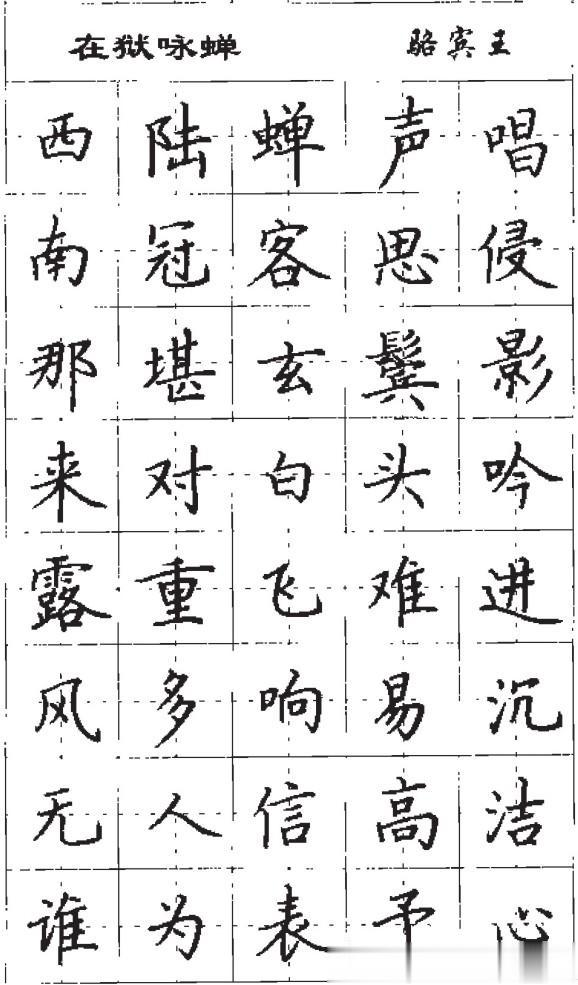 在狱咏蝉 骆宾王
西陆蝉声唱
南冠客思侵
那堪玄鬓影
来对白头吟
露重飞难进
风多响易沉
无人信高洁
谁为表予心